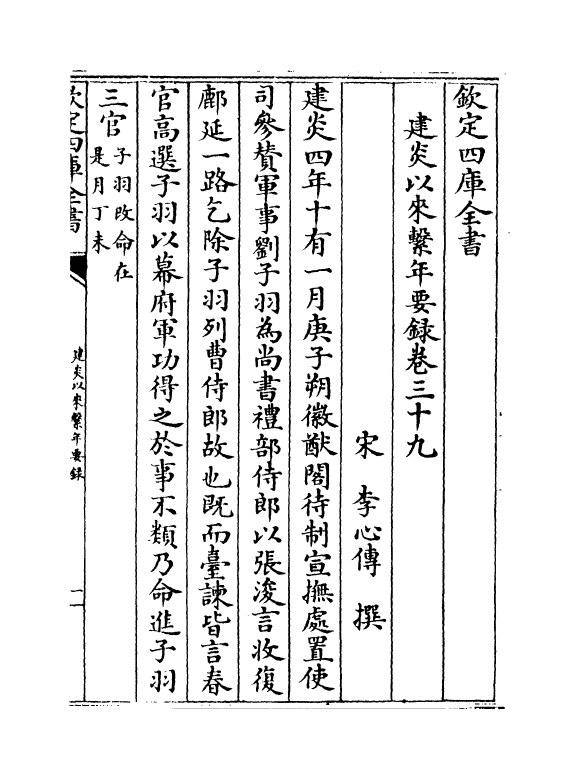 欽定四庫全書
建炎以來繫年要録卷三十九
宋 李心傳 撰
建炎四年十有一月庚子朔徽猷閣待制宣撫處置使
司參贊軍事劉子羽為尚書禮部侍郎以張浚言收復
鄜延一路乞除子羽列曹侍郎故也既而臺諫皆言春
官高選子羽以幕府軍功得之於事不類乃命進子羽
三官子羽改命在
是月丁未
欽定四庫全書
建炎以來繫年要録
一